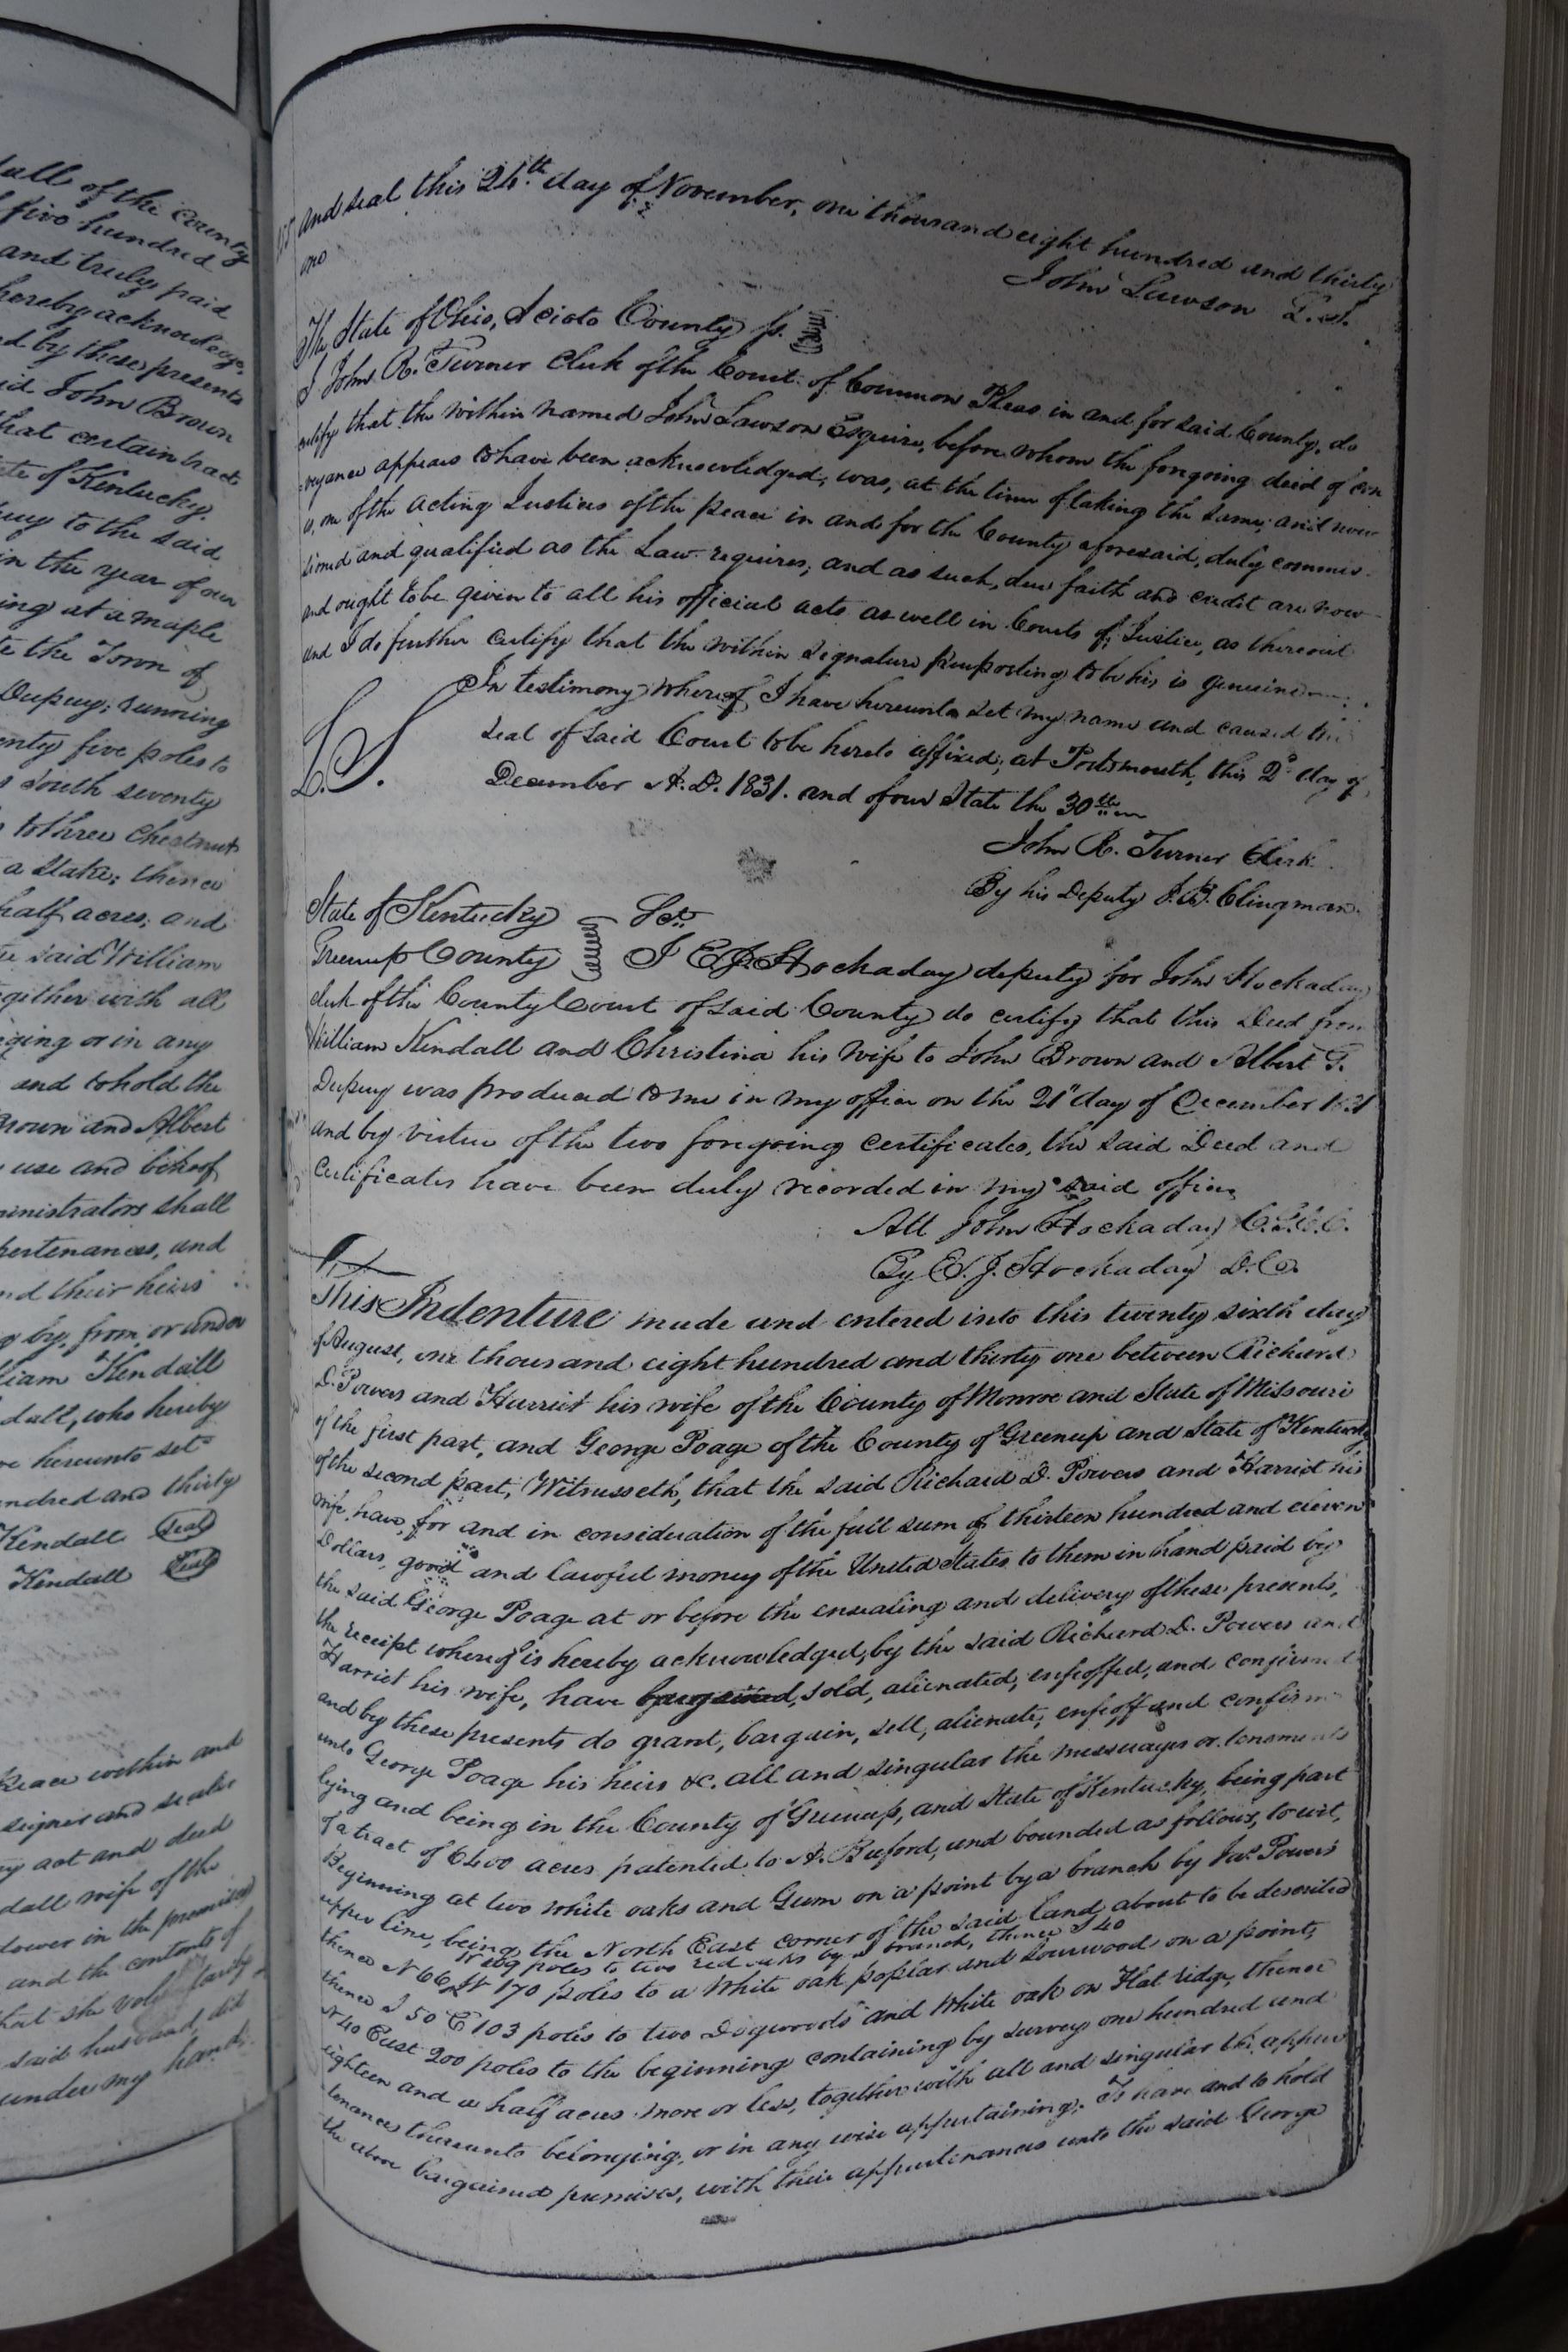 dall of the County
five hundred
and truly paid
hereby acknowledge,
d by these presents
id John Brown
that certain tract
te of Kentucky.
to the said
in the year of our
ing at a maple
the Town of
Dupuy; running
enty five poles to
South seventy
to three Chestnuts
a Stake; thence
half acres; and
said William
gether with all
ging or in any
and to hold the
Brown and Albert
use and behoof
ministrators shall
pertenances, and
nd their heirs
by, from or under
liam Kendall
dall, who hereby
hereunto set
undred and thirty
Kendall Seal
Kendall Seal
Peace within and
signer and sealer
act and deed
dall wife of the
dower in the premises
and the contents of
that she voluntarily
said husband, did
under my hand
and seal this 24th day of November, one thousand eight hundred and thirty
one
John Lawson L.S.
The State of Ohio, Scioto County ss.
I John R. Turner Clerk of the Court of Common Pleas in and for said County, do
certify that the within named John Lawson Esquire, before whom the foregoing deed of con
=veyance appears to have been acknowledged, was, at the time of taking the same, and now
is, one of the acting Justices of the peace in and for the County aforesaid, duly commis-
sioned and qualified as the Law requires, and as such, due faith and credit are now
and ought to be given to all his official acts as well in Courts of Justice, as thereout
and I do further certify that the within signature purporting to be his is genuine
In testimony whereof I have hereunto set my name and caused the
L.S. seal of said Court to be hereto affixed, at Portsmouth, this 2d day of
December A.D. 1831. and of our State the 30th
John R. Turner Clerk
By his Deputy J.B. Clingman.
State of Kentucky Sct.
Greenup County I E.J. Hockaday deputy for John Hockaday
clerk of the County Court of said County do certify that this Deed from
William Kendall and Christina his wife to John Brown and Albert G.
Dupuy was produced to me in my office on the 21" day of December 1831
and by virtue of the two foregoing certificates, the said Deed and
certificates have been duly recorded in my said office
Att John Hockaday C.G.C.C.
By E.J. Hockaday D.C.
This Indenture made and entered into this twenty sixth day
of August, one thousand eight hundred and thirty one between Richard
D. Powers and Harriet his wife of the County of Monroe and State of Missouri
of the first part, and George Poage of the County of Greenup and State of Kentucky
of the second part, Witnesseth, that the said Richard D. Powers and Harriet his
wife, have, for and in consideration of the full sum of thirteen hundred and eleven
Dollars, good and lawful money of the United States to them in hand paid by
the said George Poage at or before the ensealing and delivery of these presents,
the receipt whereof is hereby acknowledged, by the said Richard D. Powers and
Harriet his wife, have bargained, sold, alienated, enfeoffed, and confirmed
and by these presents do grant, bargain, sell, alienate, enfeoff and confirm
unto George Poage his heirs &c. all and singular the messuages or tenements
lying and being in the County of Greenup, and State of Kentucky, being part
of a tract of 6400 acres patented to A. Buford, and bounded as follows, to wit,
Beginning at two white oaks and Gum on a point by a branch by Jas. Powers'
upper line, being the North East corner of the said land about to be described
poles to two red oaks by a branch, thence S 40
thence N 66 W 170 poles to a White oak poplar and Sourwood on a point,
thence S 50 E 103 poles to two Dogwoods and White oak on Flat ridge, thence
N 40 East 200 poles to the beginning containing by survey one hundred and
eighteen and a half acres more or less, together with all and singular the appur
tenances thereunto belonging, or in any wise appertaining. To have and to hold
the above bargained premises, with their appurtenances unto the said George